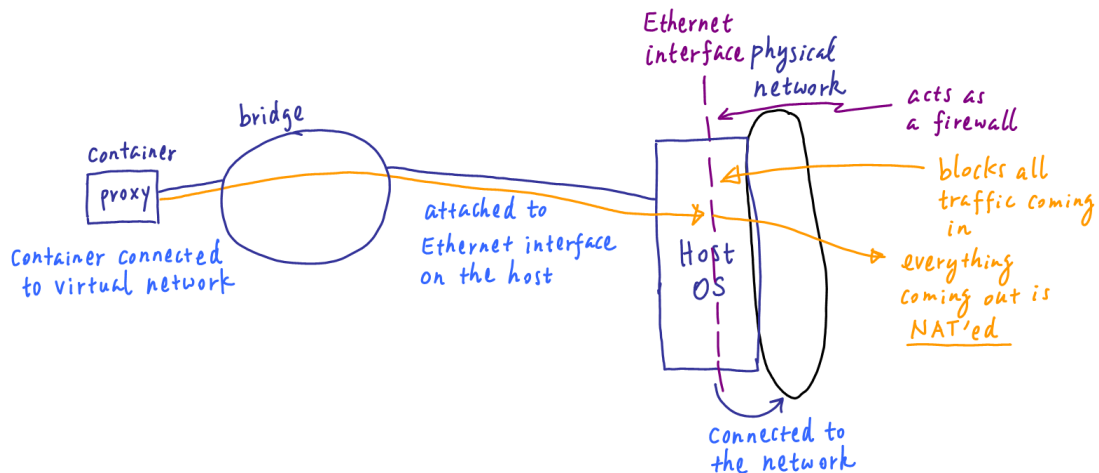 Ethernet
interface
physical
network
acts as
a firewall
bridge
Container
proxy
Container connected
to virtual network
attached to
Ethernet interface
on the host
Host
OS
blocks all
traffic coming
in
everything
coming out is
NAT'ed
Connected to
the network